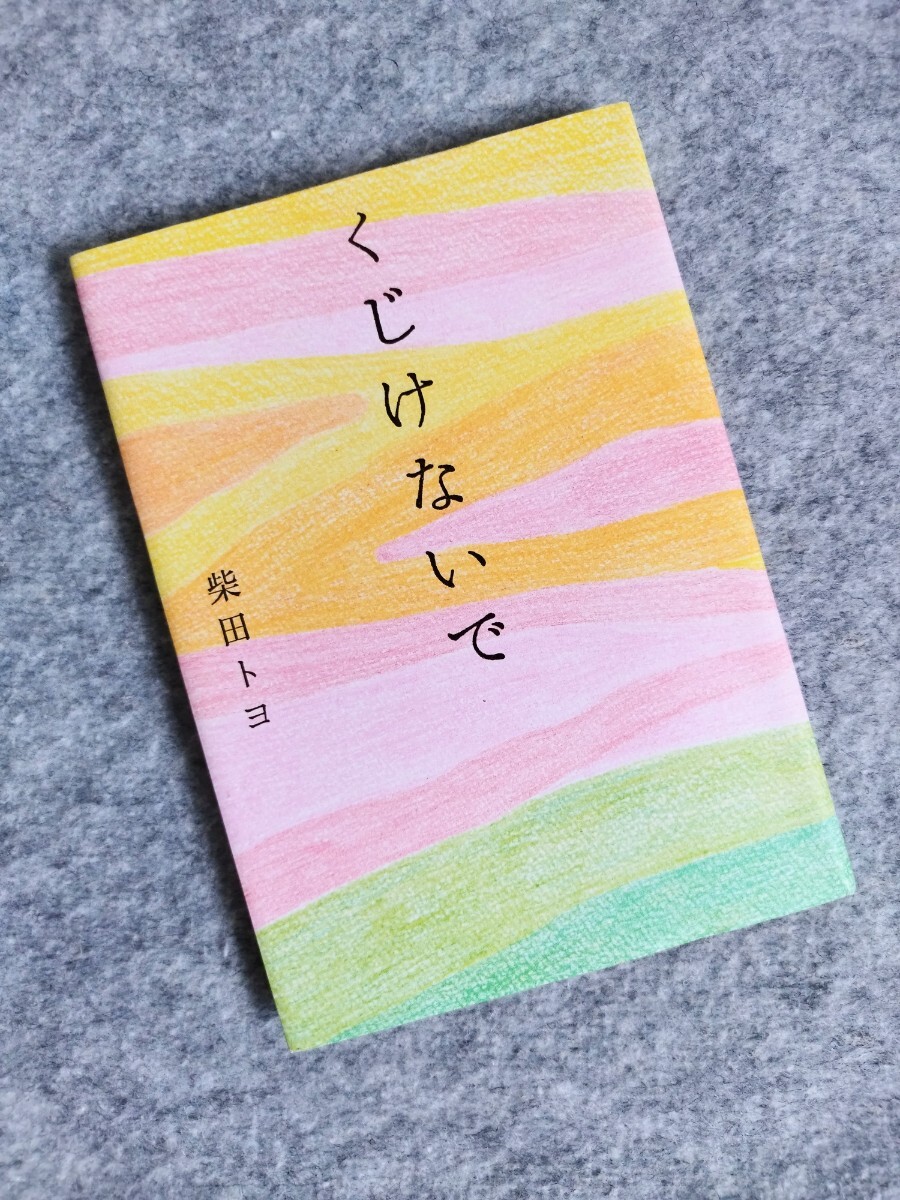 くじけないで
柴田トヨ